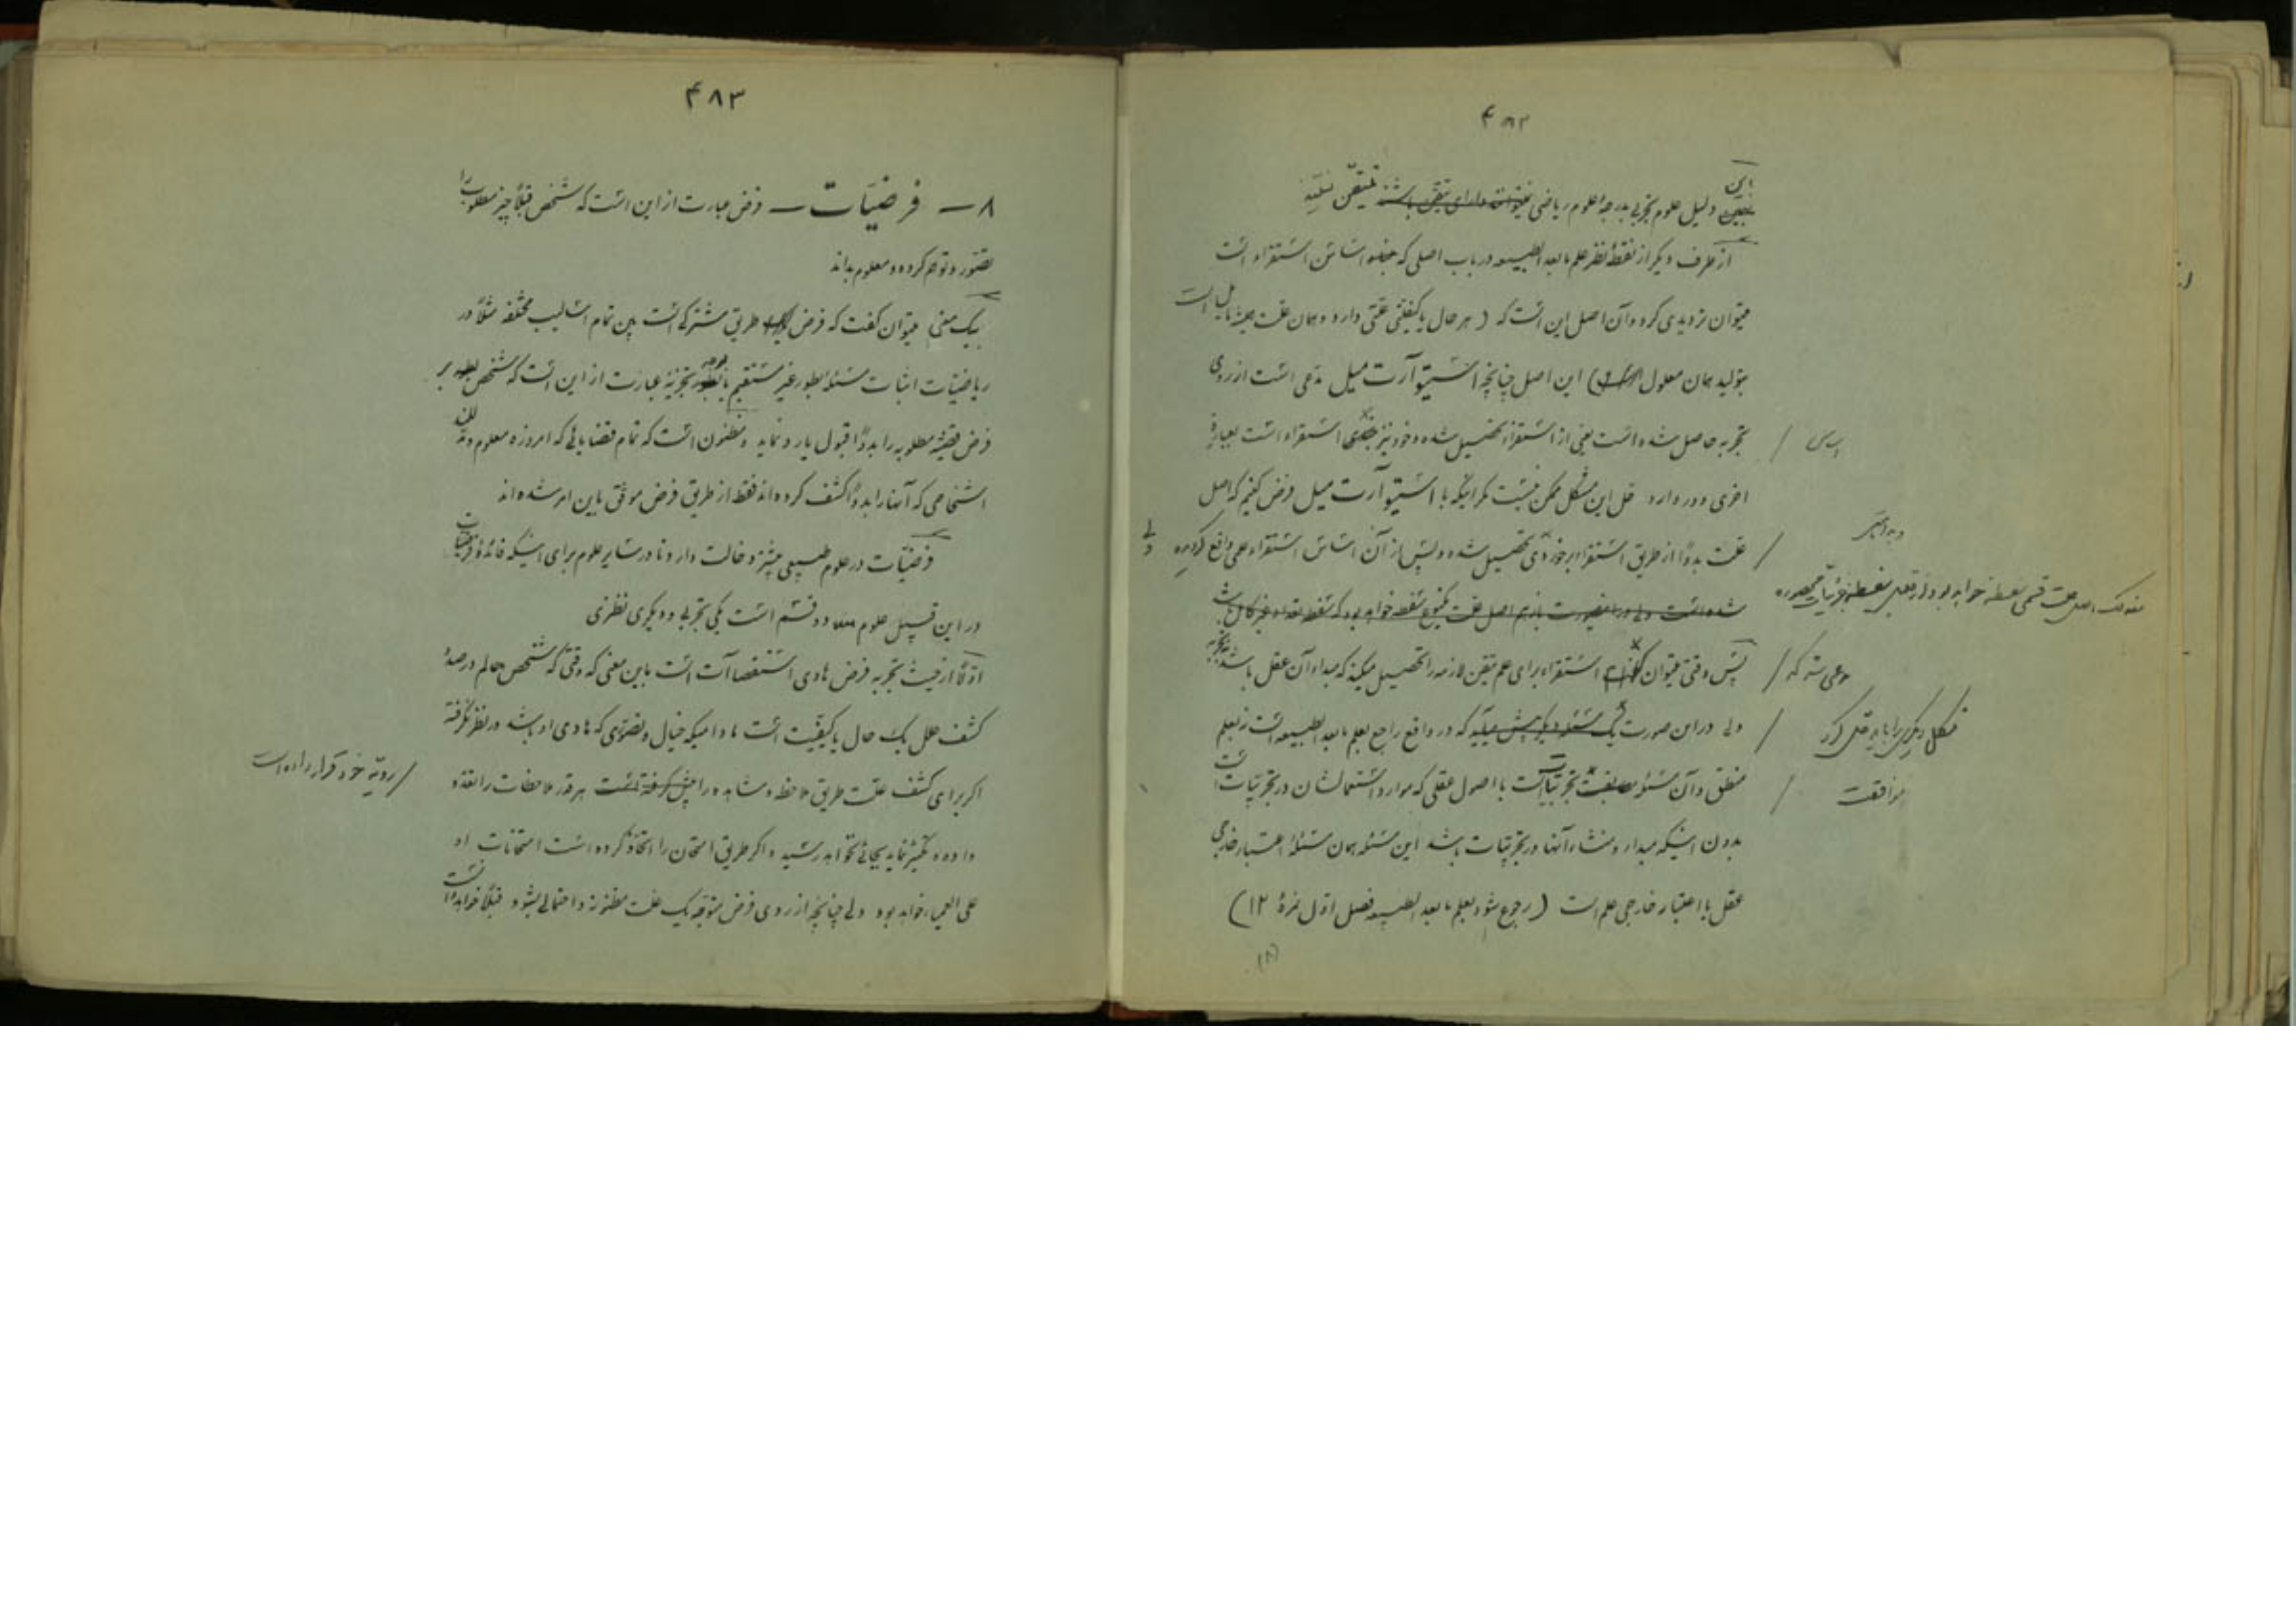 ۴۸۲
این
دلیل علوم تجربی بدرجهٔ علوم ریاضی متیقن نیستند
از طرف دیگر از نقطهٔ نظر علم مابعد الطبیعه در باب اصلی که اساس استقراء است
میتوان تردیدی کرد و آن اصل این است که ( هر حال یا کیفیتی علتی دارد و همان علت همیشه مایل است
بتولید همان معلول ) این اصل چنانچه استیوآرت میل مدعی است از روی
تجربه حاصل شده است یعنی از استقراء تحصیل شده و خود نیز استقراء است بعبارة
اساس
اخری دور دارد حل این مشکل ممکن نیست مگر اینکه با استیوآرت میل فرض کنیم که اصل
علت بدواً از طریق استقراء تحصیل شده و پس از آن اساس استقراء علمی واقع گردیده
ولی
شده است ولی در اینصورت بازهم اصل علت یکنوع سفسطه خواهد بود که سفسطه تعداد غیر کامل باشد
پس وقتی میتوان استقراء برای علم تیقن لازمه را تحصیل میکند که مبداء آن عقل باشد نه تجربه
مدعی شد که
ولی در این صورت یک مسئله دیگر پیش میآید که در واقع راجع بعلم مابعد الطبیعه است نه بعلم
مشکل دیگری را باید حل کرد
منطق و آن مسئله تجربیات است با اصول عقلی که موارد استعمالشان در تجربیات است
موافقت
بدون اینکه مبداء و منشاء آنها در تجربیات باشد این مسئله همان مسئلهٔ اعتبار خارجی
عقل یا اعتبار خارجی علم است ( رجوع شود بعلم مابعد الطبیعه فصل اول نمرهٔ ۱۲ )
(۸)
۴۸۳
۸ – فرضیّات – فرض عبارت از این است که شخص قبلاً چیز مطلوب را
تصور و توهم کرده و معلوم بداند
بیک معنی میتوان گفت که فرض طریق مشترکی است بین تمام اسالیب مختلفه مثلاً در
ریاضیّات اثبات مسئله بطور غیر مستقیم یا تجزیه عبارت از این است که شخص بر
فرض قضیّه مطلوبه را بدواً قبول یا رد نماید و مظنون است که تمام قضایائی که امروزه معلومند
اشخاصی که آنها را بدواً کشف کرده‌اند فقط از طریق فرض موفق باین امر شده‌اند
فرضیّات در علوم طبیعی بیشتر دخالت دارد تا در سایر علوم برای اینکه فائدهٔ فرضیات
در این قبیل علوم دو قسم است یکی تجربی و دیگری نظری
اولاً از حیث تجربه فرض هادی استقصاآت است باین معنی که وقتی که شخص عالم در صدد
کشف علل یک حال یا کیفیّت است مادامیکه خیال و تصوری که هادی او باشد در نظر نگرفته
اگر برای کشف علت طریق ملاحظه و مشاهده را پیش گرفته است هر قدر ملاحظات را تعدد
رویّه خود قرار داده است
داده و تکثیر نماید بجائی نخواهد رسید و اگر طریق امتحان را اتخاذ کرده است امتحانات او
علی العمیاء خواهد بود ولی چنانچه از روی فرض متوجه یک علت مظنونه و احتمالی بشود قبلاً خواهد دانست